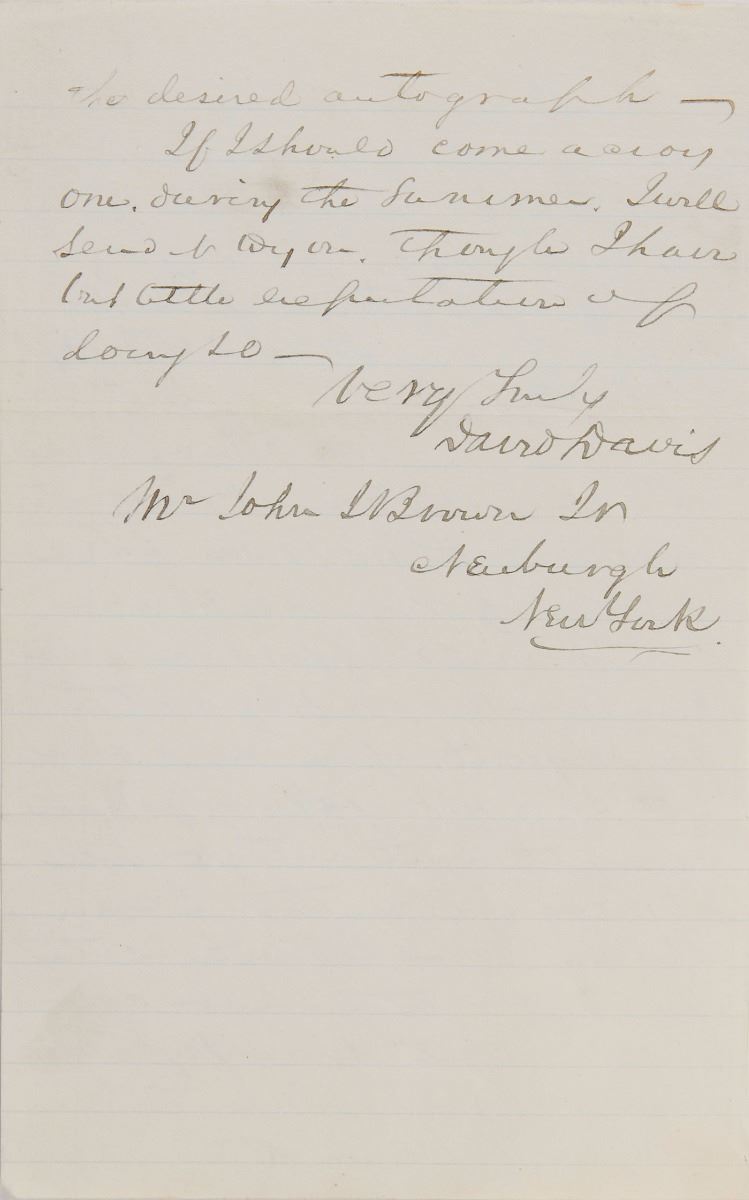 the desired autograph —
If I should come across
one, during the Summer, I will
send it to you, though I have
but little expectation of
doing so —
Very Truly
David Davis
Mr John Brown Jr
Newburgh
New York.